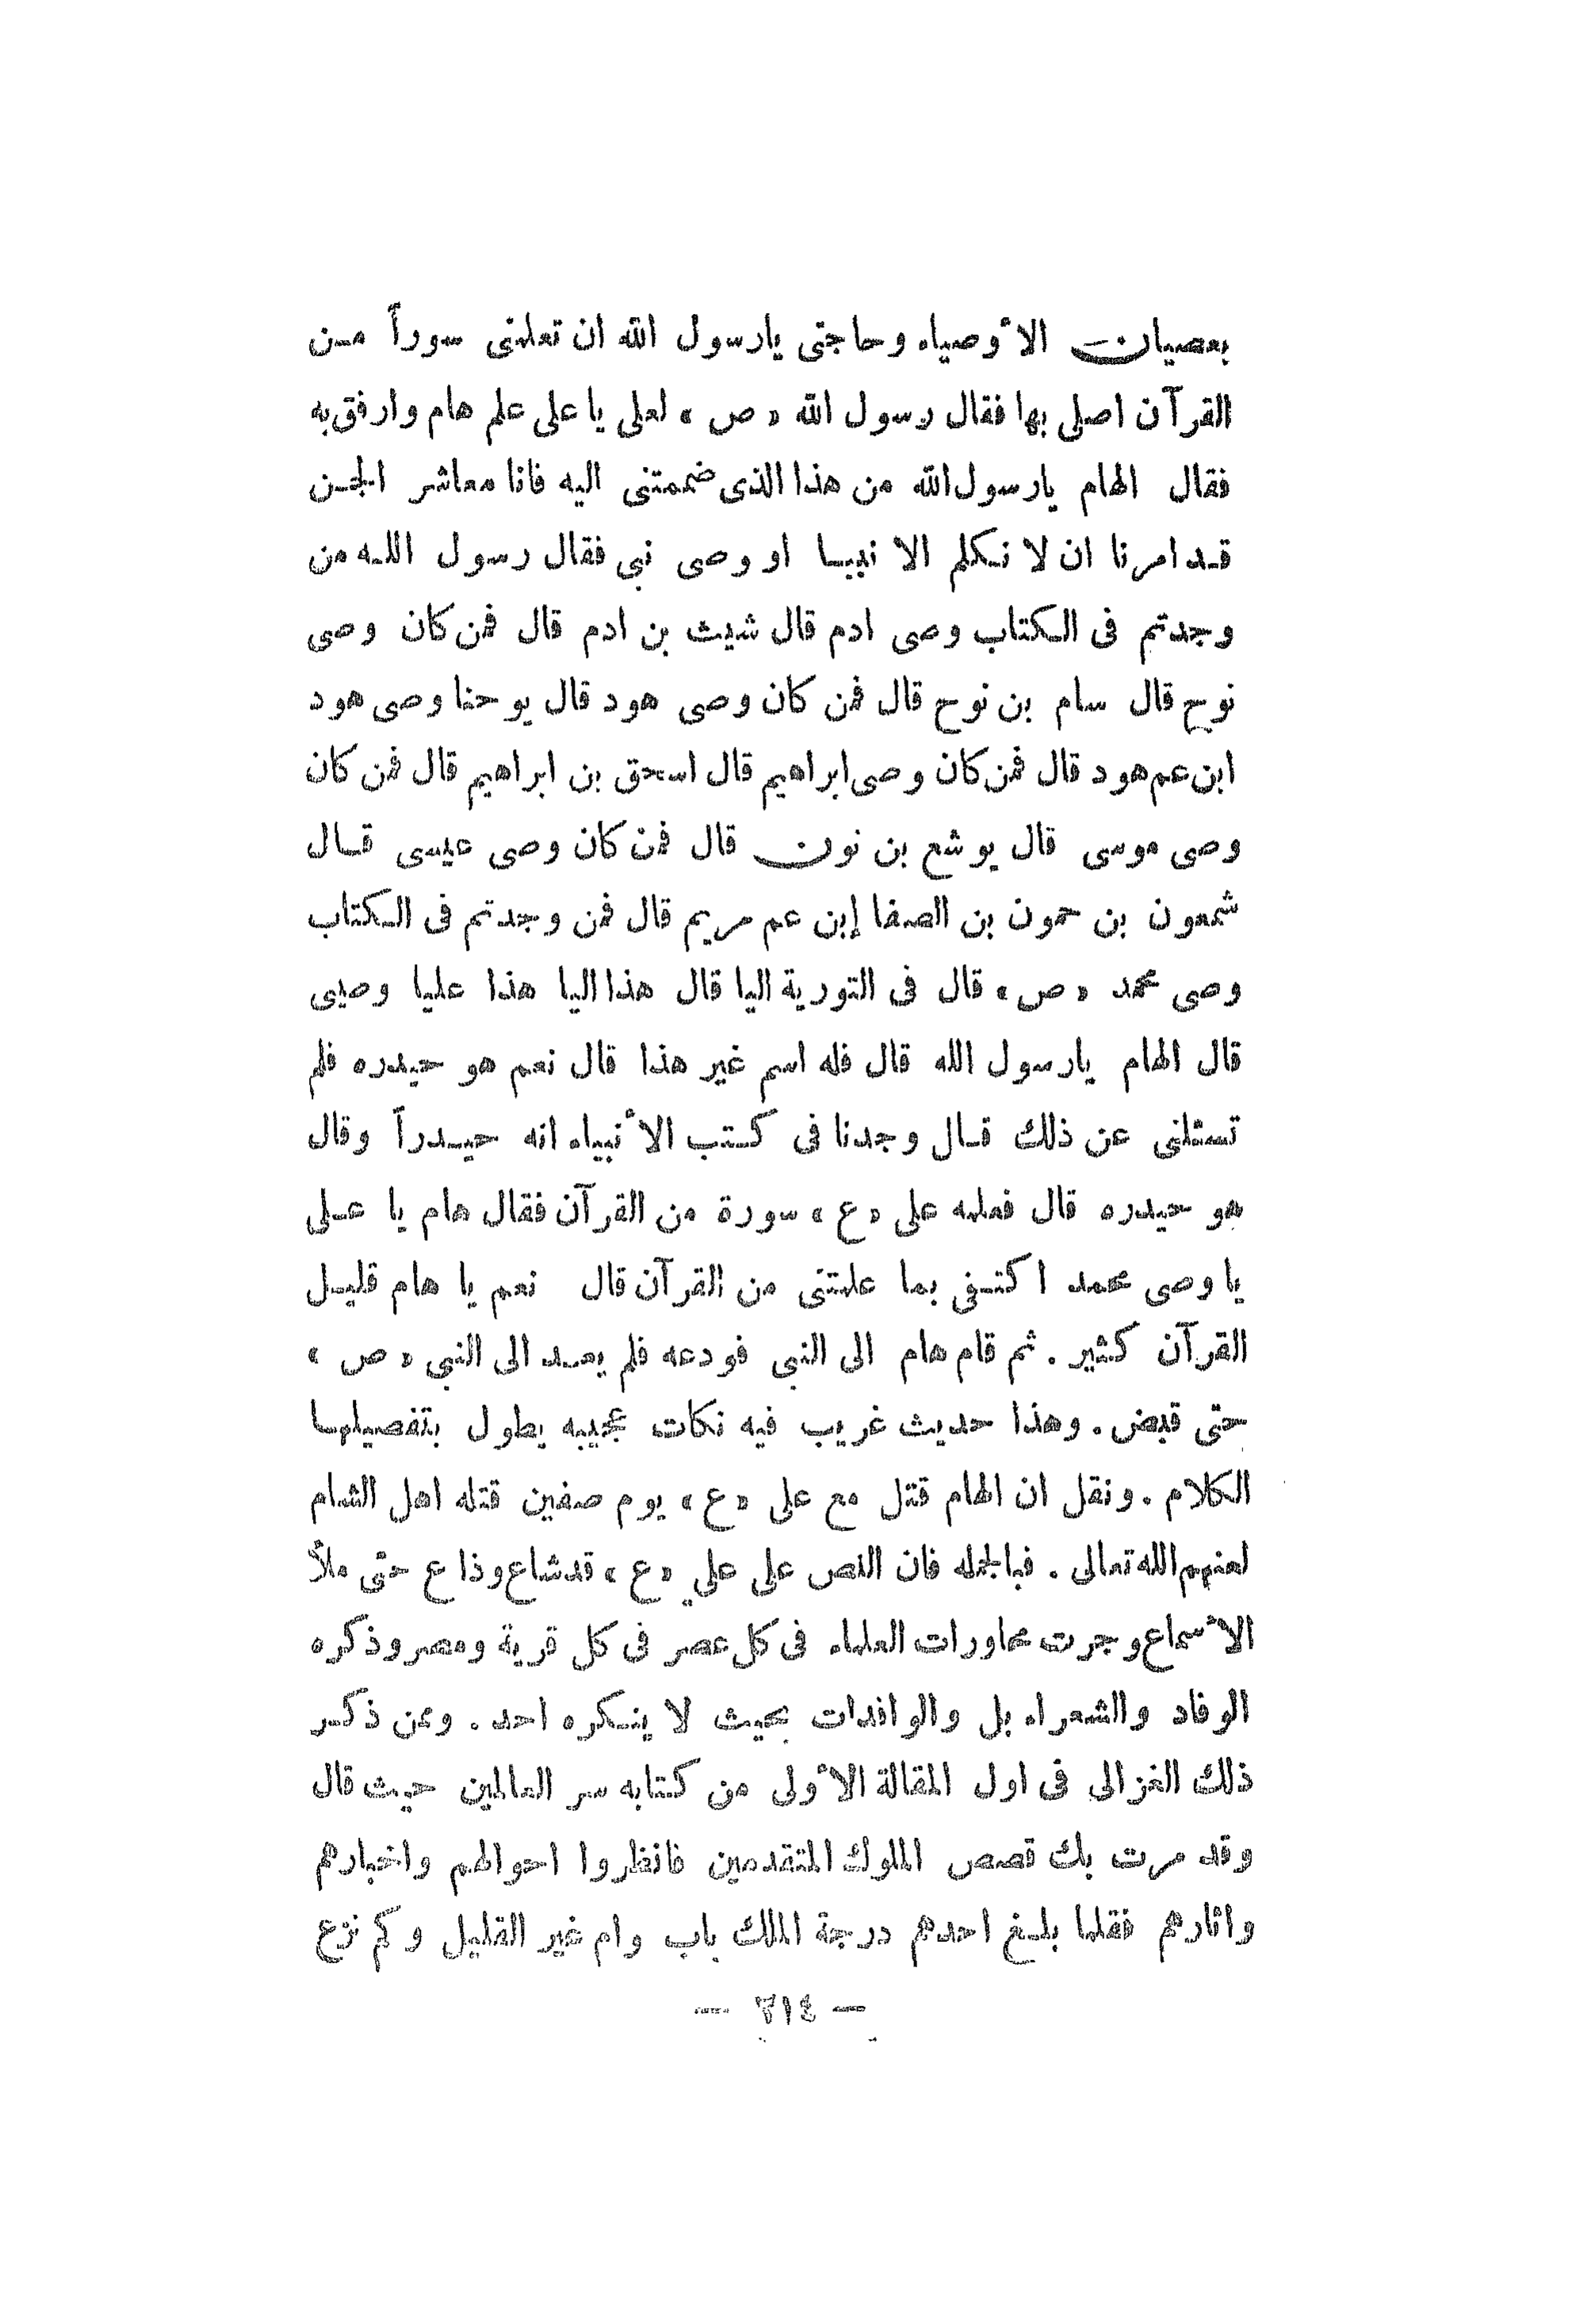 بعصيان الأوصياء وحاجتى يارسول الله ان تعلمنى سوراً من
القرآن اصلى بها فقال رسول الله «ص» لعلى يا على علم هام وارفق به
فقال الهام يارسول الله من هذا الذى ضممتنى اليه فانا معاشر الجن
قد امرنا ان لا نكلم الا نبيا او وصى نبى فقال رسول الله من
وجدتم فى الكتاب وصى ادم قال شيث بن ادم قال فمن كان وصى
نوح قال سام بن نوح قال فمن كان وصى هود قال يوحنا وصى هود
ابن عم هود قال فمن كان وصى ابراهيم قال اسحق بن ابراهيم قال فمن كان
وصى موسى قال يوشع بن نون قال فمن كان وصى عيسى قال
شمعون بن حمون بن الصفا إبن عم مريم قال فمن وجدتم فى الكتاب
وصى محمد «ص» قال فى التورية اليا قال هذا اليا هذا عليا وصيى
قال الهام يارسول الله قال فله اسم غير هذا قال نعم هو حيدره فلم
تسئلنى عن ذلك قال وجدنا فى كتب الأنبياء انه حيدراً وقال
هو حيدره قال فعلمه على «ع» سورة من القرآن فقال هام يا على
يا وصى محمد اكتفى بما علمتنى من القرآن قال نعم يا هام قليل
القرآن كثير . ثم قام هام الى النبى فودعه فلم يعد الى النبى «ص»
حتى قبض . وهذا حديث غريب فيه نكات عجيبه يطول بتفصيلها
الكلام . ونقل ان الهام قتل مع على «ع» يوم صفين قتله اهل الشام
لعنهم الله تعالى . فبالجمله فان النص على علي «ع» قد شاع وذاع حتى ملأ
الأسماع وجرت محاورات العلماء فى كل عصر فى كل قرية ومصر وذكره
الوفاد والشعراء بل والوافدات بحيث لا ينكره احد . وممن ذكر
ذلك الغزالى فى اول المقالة الأولى من كتابه سر العالمين حيث قال
وقد مرت بك قصص الملوك المتقدمين فانظروا احوالهم واخبارهم
واثارهم فقلما بلغ احدهم درجة الملك باب وام غير القليل وكم نزع
— ٣١٤ —